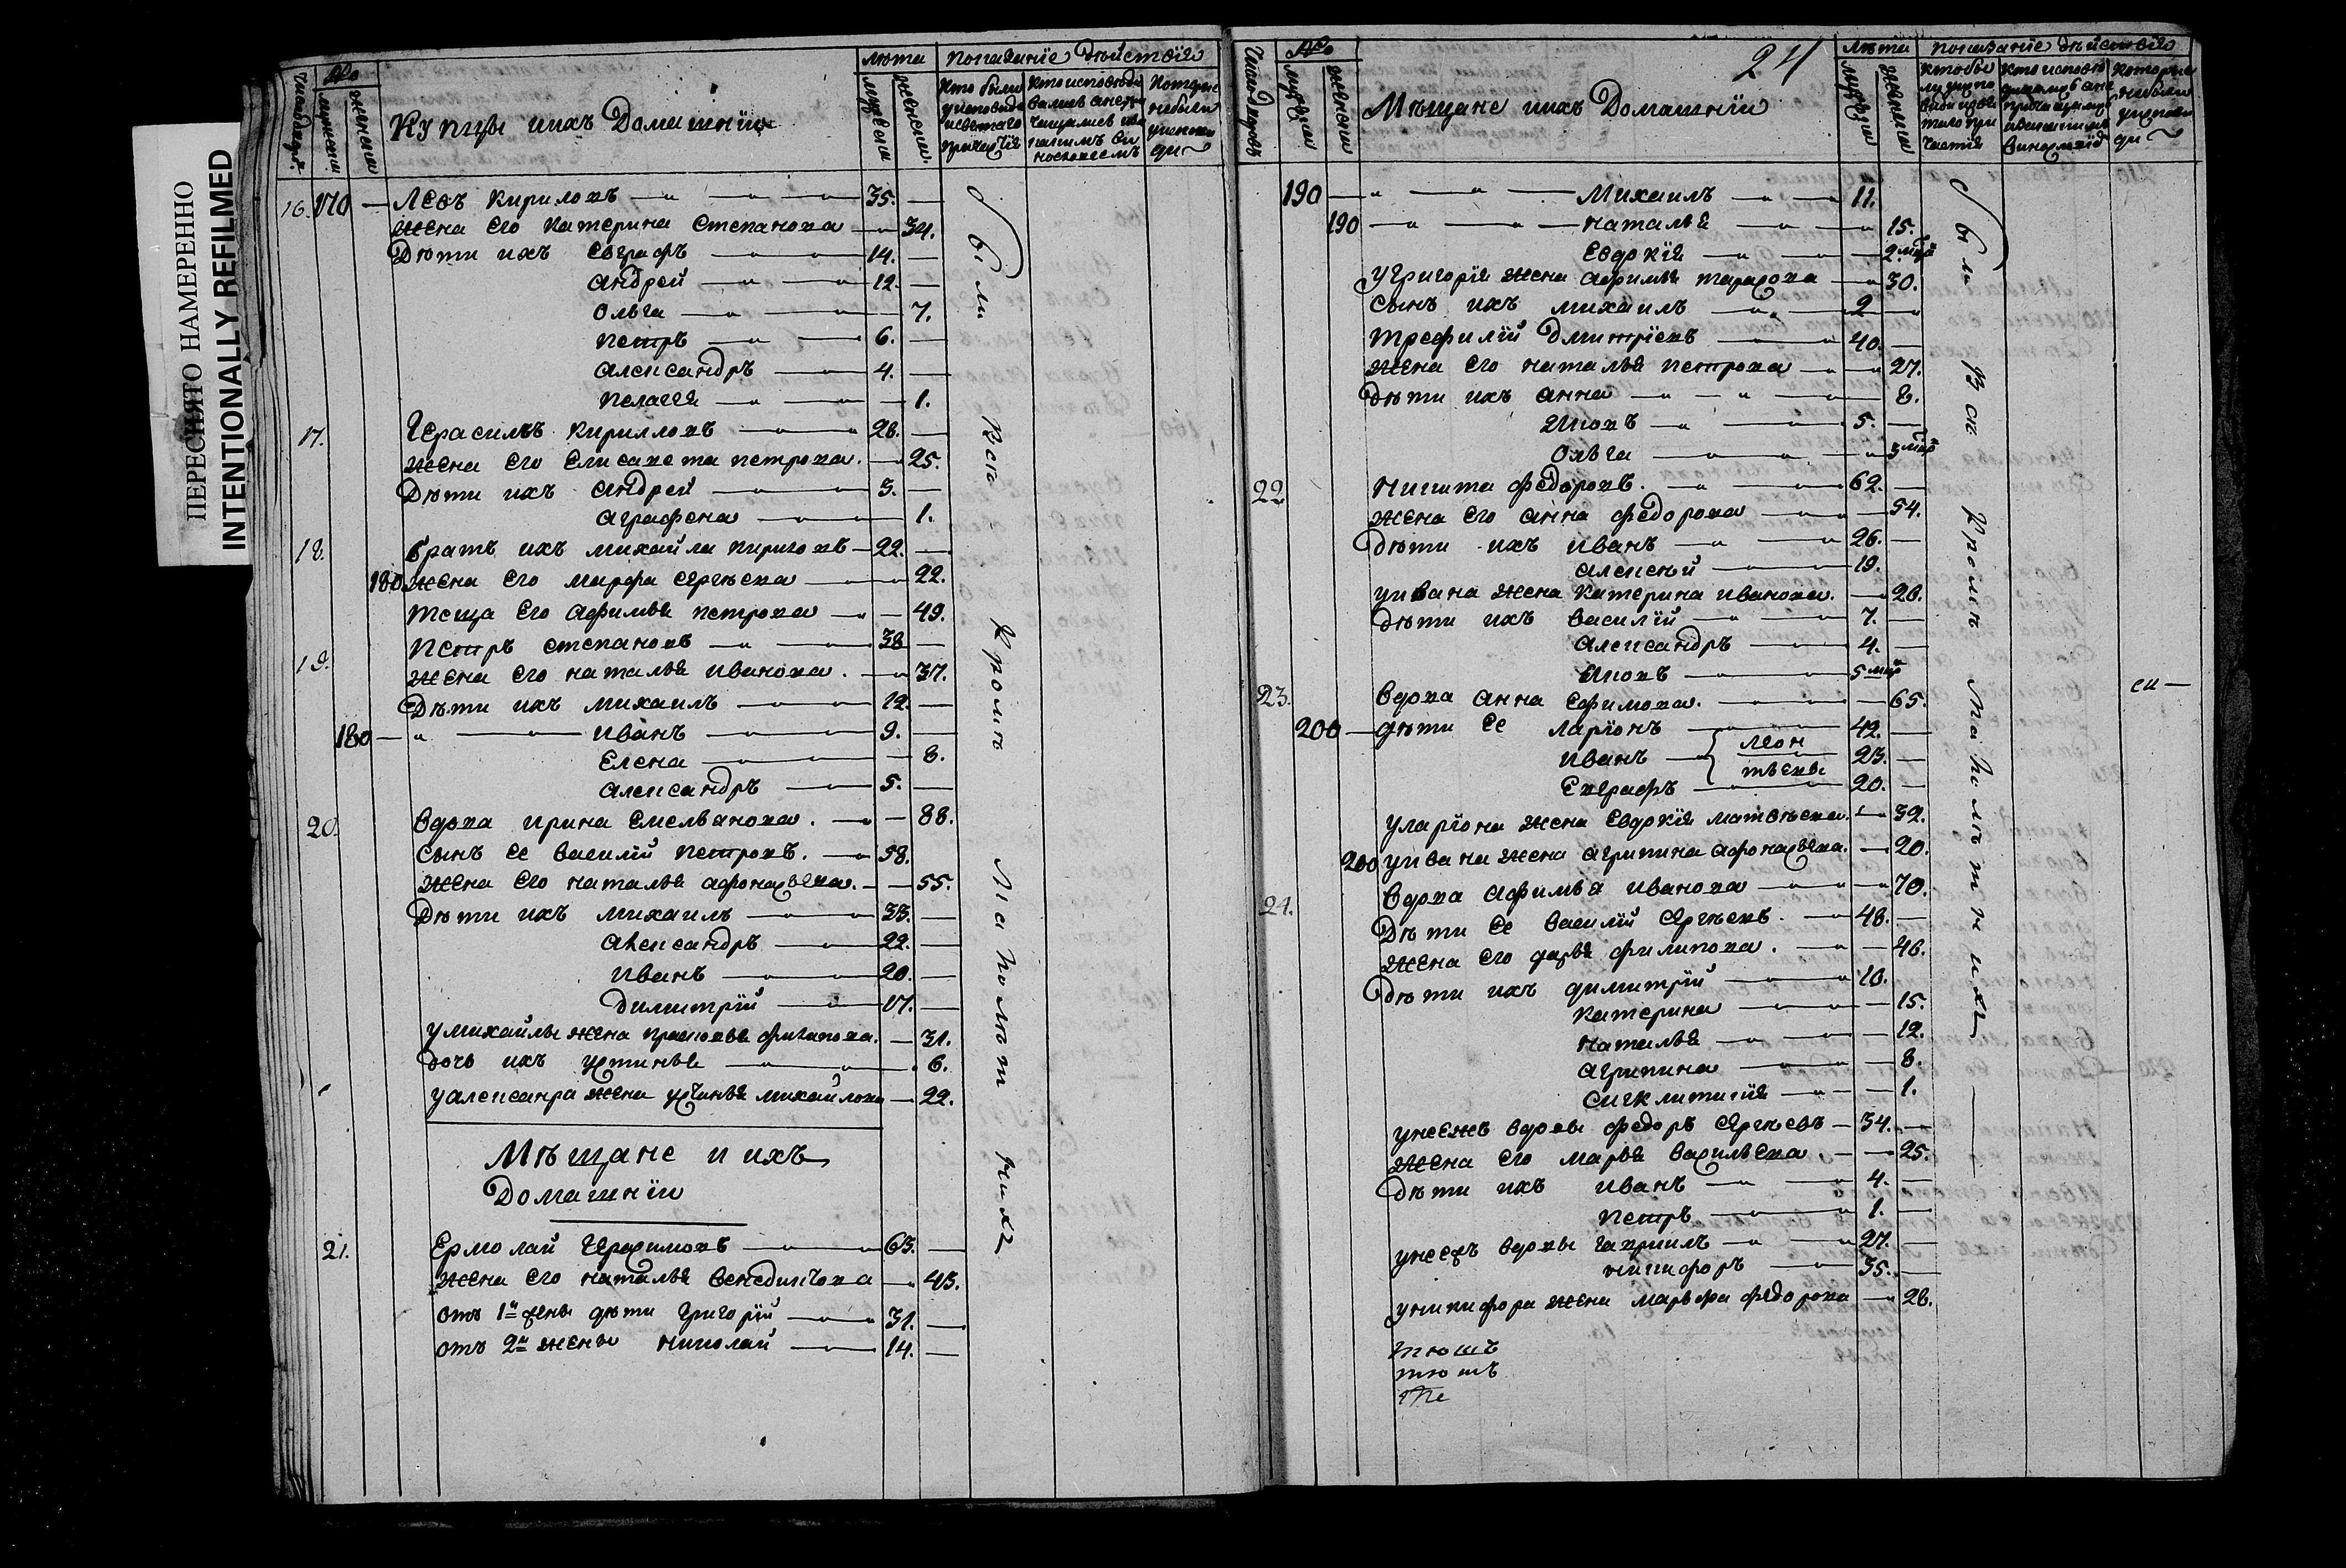 ПЕРЕСНЯТО НАМЕРЕННО
INTENTIONALLY REFILMED
Число дворовъ
№
мужески
женски
Купцы ихъ Домашнїи
лѣта
мужески
женски.
показанїе дѣйствїя
Кто были у исповѣди и святаго причастїя
Кто исповѣдывались а не причащались
Которые не были у исповѣди
16. 170 — Левъ Кириловъ 35.
Жена его Катерина Степанова 34.
Дѣти ихъ Евграфъ 14.
Андрей 12.
Ольга 7.
Петръ 6.
Александръ 4.
Пелагея 1.
17. Герасимъ Кирилловъ 28.
Жена его Елисавета Петрова. 25.
Дѣти ихъ Андрей 3.
Аграфена 1.
18. братъ ихъ Михайла Кириловъ 22.
180 Жена его Марфа Сергѣева 22.
Теща его Афимья Петрова 49.
19. Петръ Степановъ 38
Жена его Наталья Иванова. 37.
Дѣти ихъ Михаилъ 12.
180 — Иванъ 9.
Елена 8.
Александръ 5.
20. Вдова Ирина Емельянова. 88.
Сынъ ее Василїй Петровъ. 58.
Жена его Наталья Афонасьева. 55.
Дѣти ихъ Михаилъ 33.
Александръ 22.
Иванъ 20.
Димитрїй 17.
У Михайлы жена Прасковья Филипова. 31.
дочь ихъ Устинья 6.
У Алексанра жена Устинья Михайлова 22.
Мѣщане и ихъ
Домашнїи
21. Ермолай Герасимовъ 63.
Жена его Наталья Венедиктова 43.
отъ 1й жены дѣти Григорїй 31.
отъ 2й жены Николай 14.
были Всѣ Кромѣ Малолѣтнихъ
24
Число дворовъ
№
мужески
женски
Мѣщане ихъ Домашнїи
лѣта
мужески
женски
показанїе дѣйствїя
190 — Михаилъ 11.
190 Наталья 15.
Евдокїя 2 мцъ
У Григорїя жена Афимья Тарасова 30.
Сынъ ихъ Михаилъ 2
Трефилїй Дмитрїевъ 40.
Жена его Наталья Петрова 27.
Дѣти ихъ Анна 8.
Яковъ 5.
Ольга 3 мцъ
22 Никита Федоровъ. 62.
Жена его Анна Федорова 54.
Дѣти ихъ Иванъ 26.
Алексѣй 19.
У Ивана жена Катерина Иванова. 26.
Дѣти ихъ Василїй 7.
Александръ 4.
Яковъ 5 мцъ
23. Вдова Анна Ефимова. 65.
200 — дѣти ее Ларїонъ 42.
Иванъ 23.
Леон
тьевы
Евграфъ 20.
У Ларїона жена Евдокїя Матвѣева. 39.
200 У Ивана жена Агрипина Афонасьева. 20.
24. Вдова Афимья Иванова 70.
Дѣти ее Василїй Сергѣевъ. 48.
Жена его Дарья Филипова. 46.
Дѣти ихъ Димитрїй 18.
Катерина 15.
Наталья 12.
Агрипина 8.
Сигклитикїя 1.
У неежъ вдовы Федоръ Сергѣевъ 34.
Жена его Марья Васильева. 25.
Дѣти ихъ Иванъ 4.
Петръ 1.
У неежъ вдовы Гавриилъ 27.
Никифоръ 35.
У Никифора жена Марфа Федорова 28.
были Всѣ Кромѣ Малолѣтнихъ